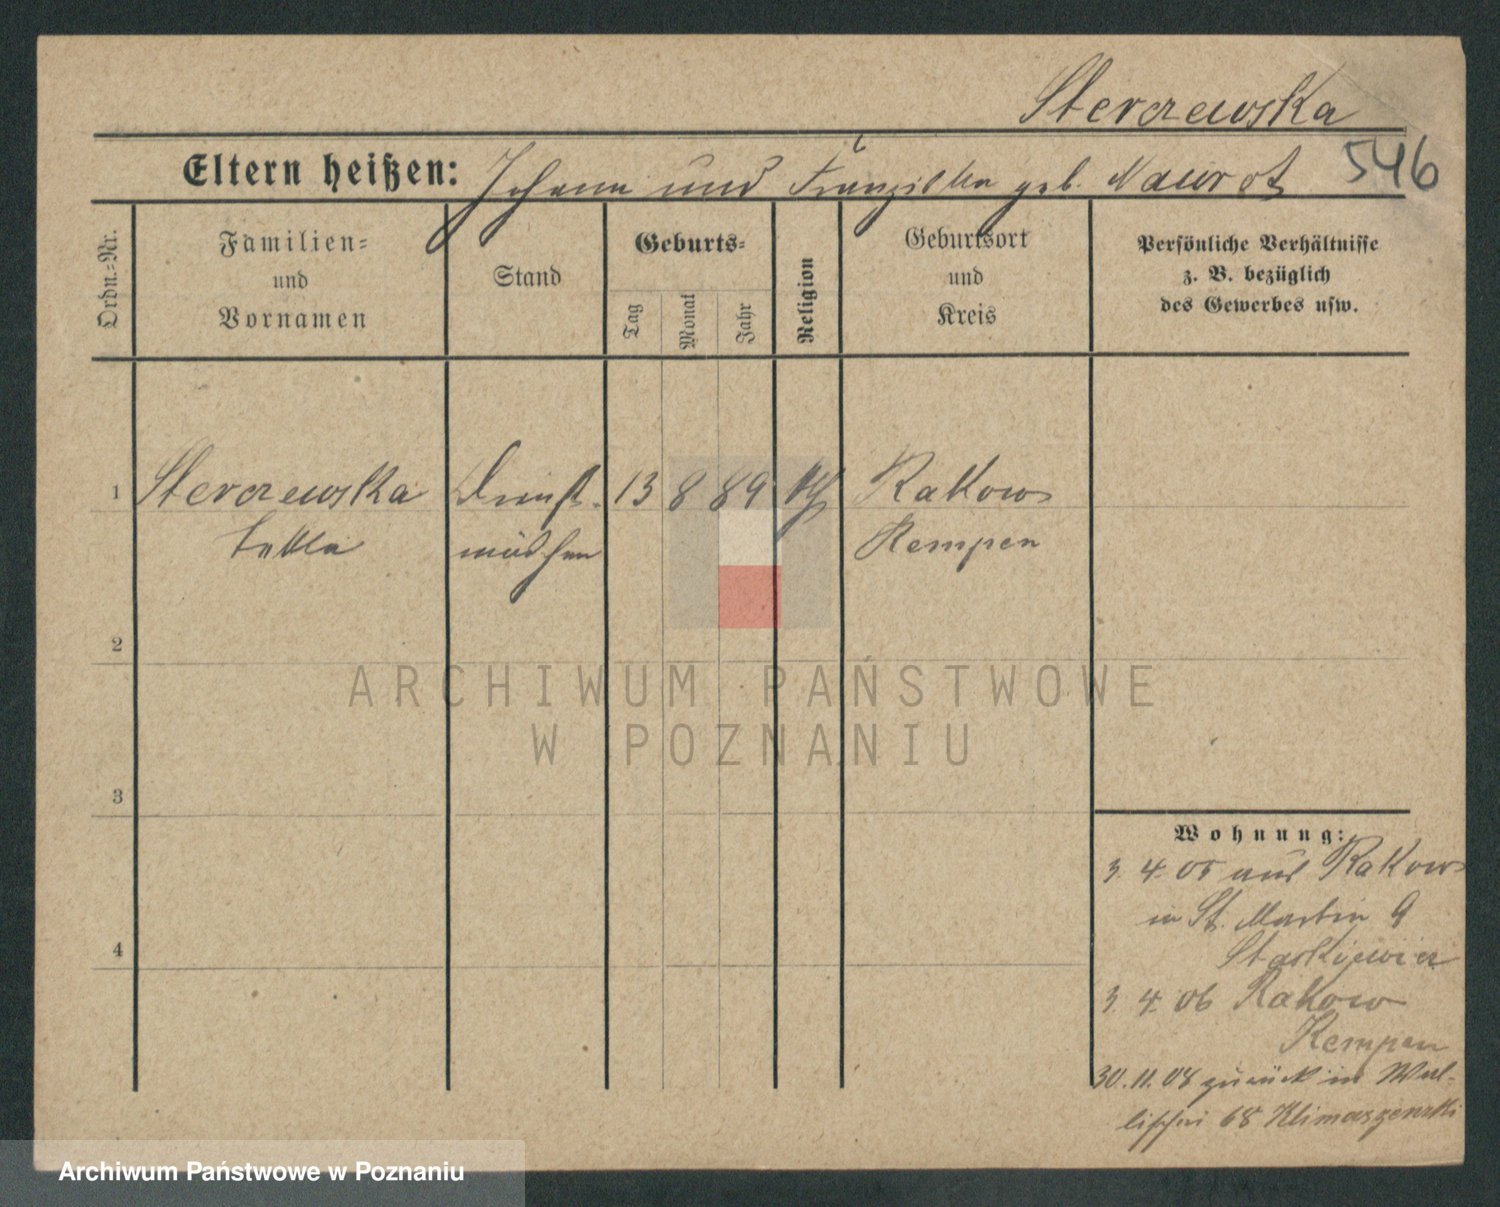 Sterczewska
546
Eltern heißen: Johann und Franziska geb. Nawrot
Ordn.-Nr.
Familien-
und
Vornamen
Stand
Geburts-
Tag
Monat
Jahr
Religion
Geburtsort
und
Kreis
Persönliche Verhältnisse
z. B. bezüglich
des Gewerbes usw.
1 Sterczewska Dienst- 13 8 89 kth Rakow
Tekla mädchen Kempen
2
3
4
Wohnung:
3. 4. 05 aus Rakow
in St. Martin 9
3. 4. 06 Rakow
Kempen
30. 11. 08 zurück in Wal-
lischei 68 Klimaszenski
ARCHIWUM PAŃSTWOWE
W POZNANIU
Archiwum Państwowe w Poznaniu